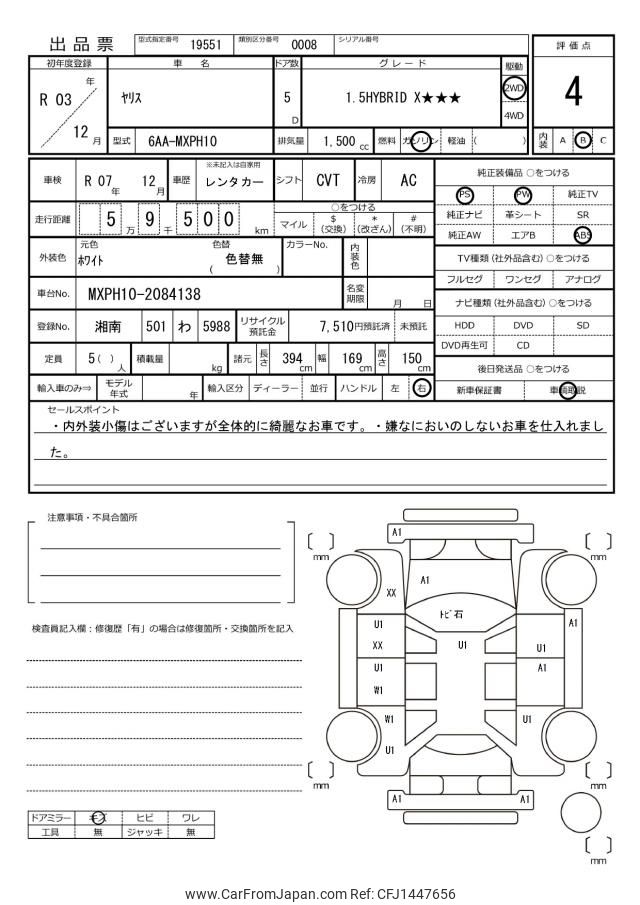 出品票 型式指定番号 19551 類別区分番号 0008 シリアル番号
評価点
4
内装 A B C
初年度登録 車名 ドア数 グレード 駆動
R 03 年 12 月 ヤリス 5 D 1.5HYBRID X★★★ 2WD 4WD
型式 6AA-MXPH10 排気量 1,500 cc 燃料 ガソリン 軽油 ( )
車検 R 07 年 12 月 車歴 ※未記入は自家用 レンタカー シフト CVT 冷房 AC
走行距離 5 9 万 千 5 0 0 km
○をつける
マイル $ (交換) * (改ざん) # (不明)
外装色 元色 ホワイト 色替 ( 色替無 ) カラーNo. 内装色
車台No. MXPH10-2084138 名変期限 月 日
登録No. 湘南 501 わ 5988 リサイクル預託金 7,510円預託済 未預託
定員 5 ( ) 人 積載量 kg 諸元 長さ 394 cm 幅 169 cm 高さ 150 cm
輸入車のみ⇒ モデル年式 年 輸入区分 ディーラー 並行 ハンドル 左 右
純正装備品 ○をつける
PS PW 純正TV
純正ナビ 革シート SR
純正AW エアB ABS
TV種類 (社外品含む) ○をつける
フルセグ ワンセグ アナログ
ナビ種類 (社外品含む) ○をつける
HDD DVD SD
DVD再生可 CD
後日発送品 ○をつける
新車保証書 車輌取説
セールスポイント
・内外装小傷はございますが全体的に綺麗なお車です。・嫌なにおいのしないお車を仕入れまし
た。
注意事項・不具合箇所
検査員記入欄:修復歴「有」の場合は修復箇所・交換箇所を記入
A1
mm
mm
A1
XX
トビ石
U1
A1
XX
U1
U1
U1
A1
W1
W1
U1
U1
mm
mm
A1
A1
mm
ドアミラー キズ ヒビ ワレ
工具 無 ジャッキ 無
www.CarFromJapan.com Ref: CFJ1447656